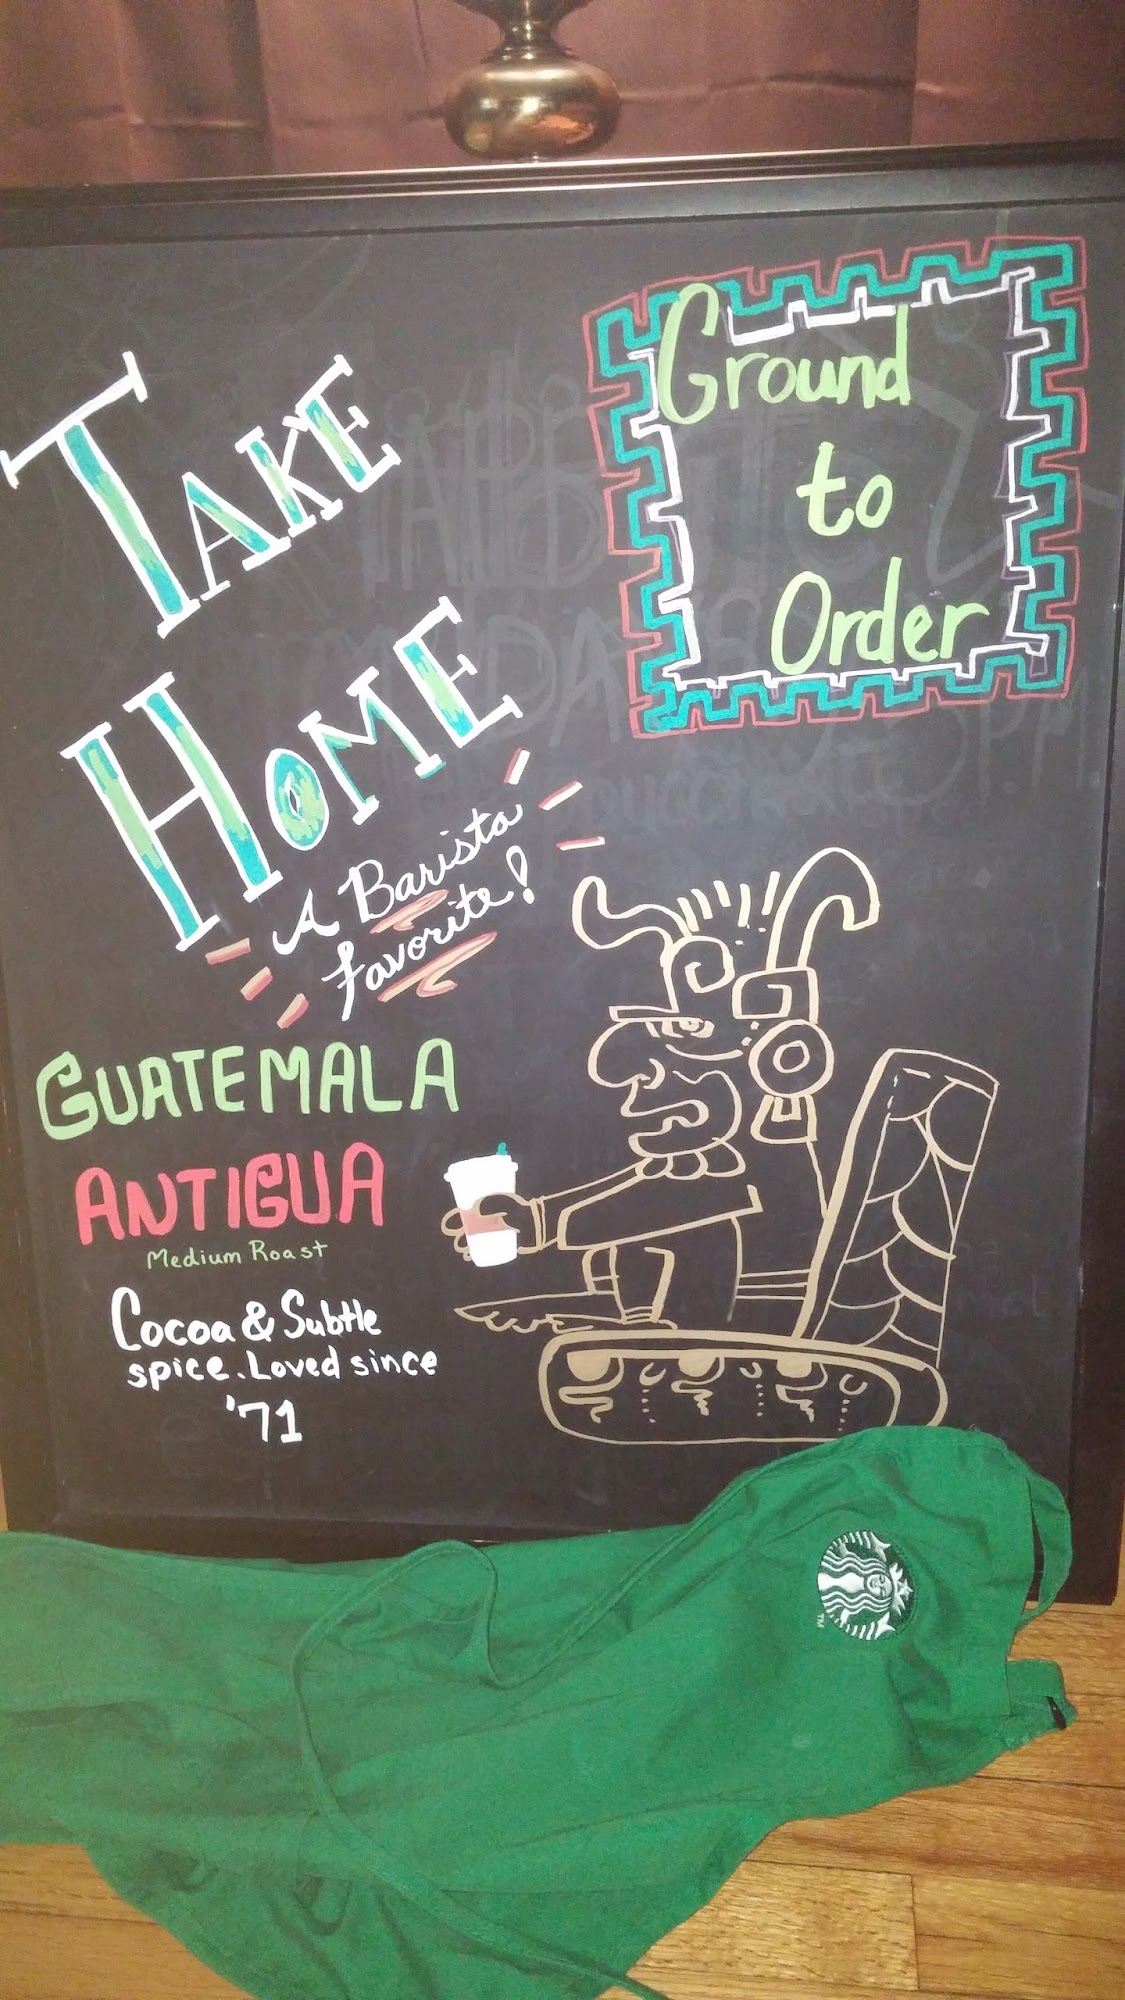 TAKE
HOME
A Barista
favorite!
Ground
to
Order
GUATEMALA
ANTIGUA
Medium Roast
Cocoa & Subtle
spice. Loved since
'71
TM